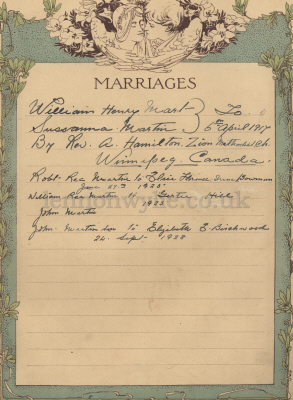 MARRIAGES
William Henry Mart To
Sussanna Martin 5th April 1917
By Rev. A. Hamilton, Zion Methodist Ch.
Winnipeg, Canada.
Robt Reg Martin to Elsie Bowman
June 27th 1925
William Hill
1933
John Martin
John Martin to Elizabeth E. Birchwood
24 Sept 1938